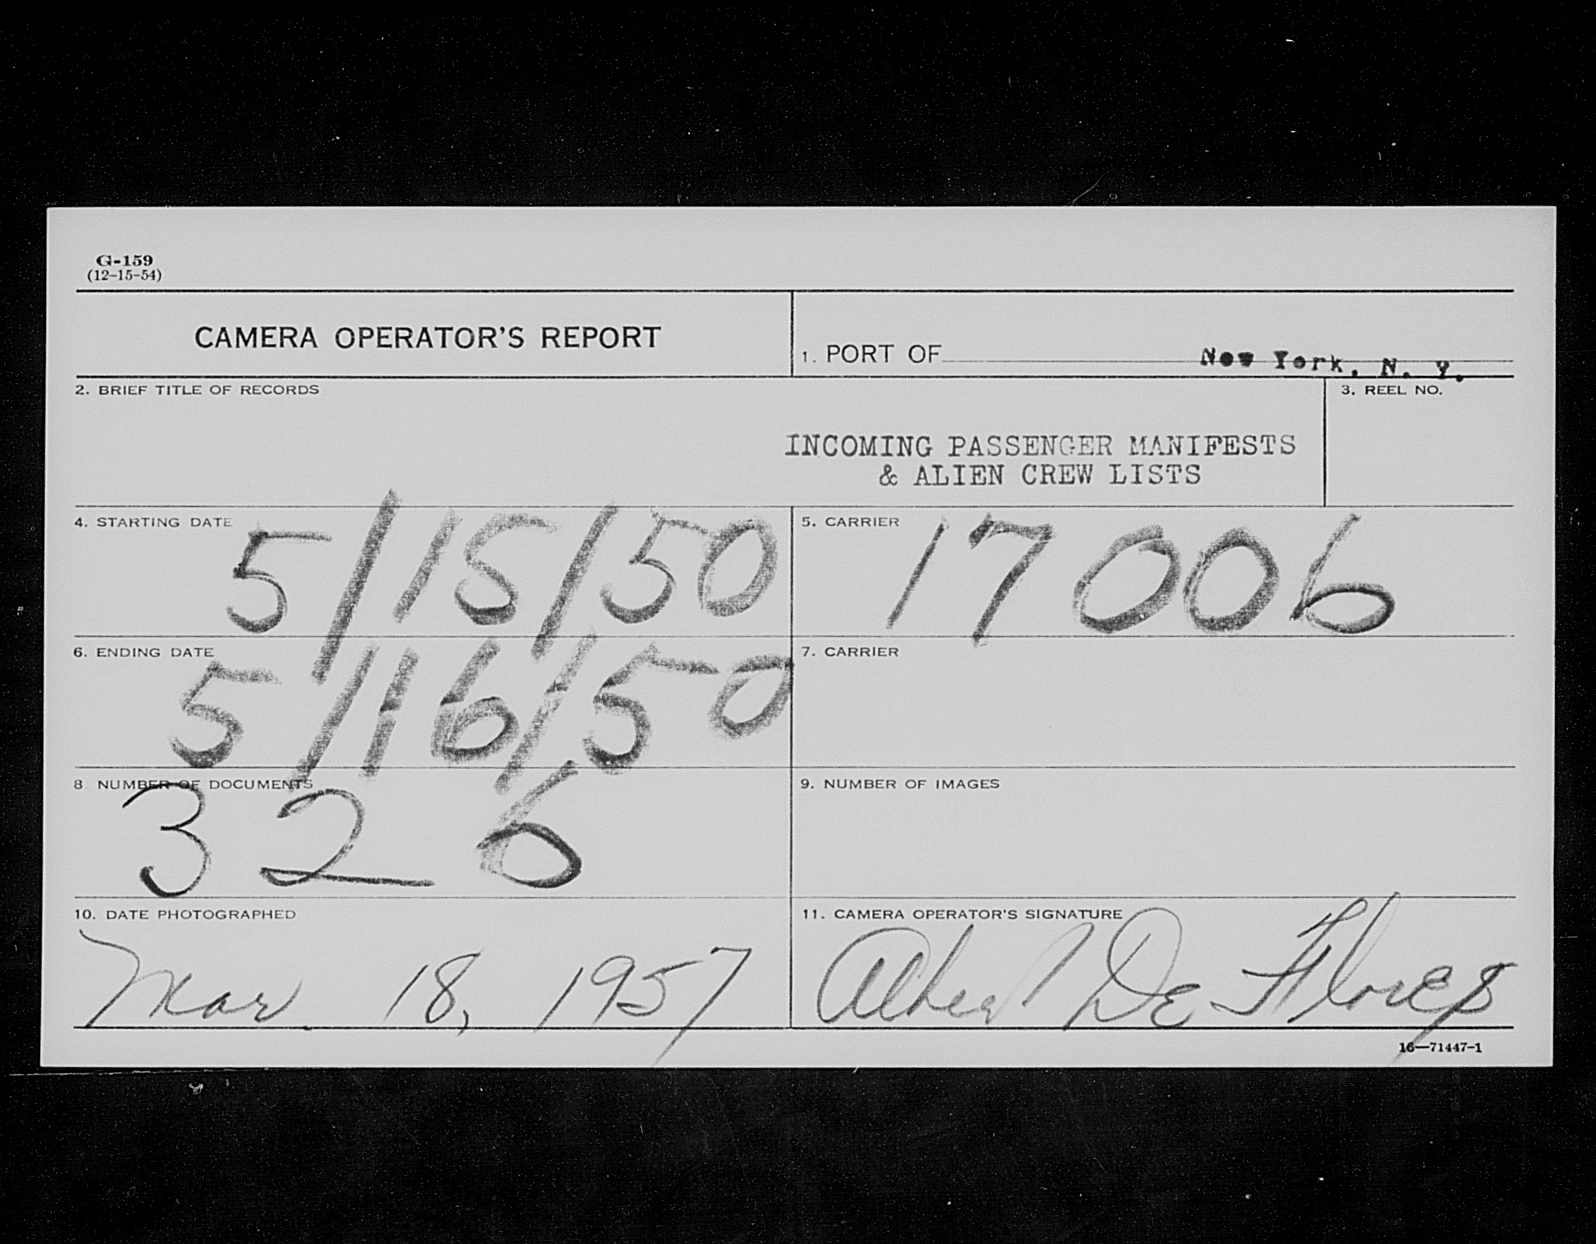 G-159
(12-15-54)
CAMERA OPERATOR'S REPORT
1. PORT OF New York, N. Y.
2. BRIEF TITLE OF RECORDS
3. REEL NO.
INCOMING PASSENGER MANIFESTS
& ALIEN CREW LISTS
4. STARTING DATE 5/15/50
5. CARRIER 17006
6. ENDING DATE 5/16/50
7. CARRIER
8 NUMBER OF DOCUMENTS 326
9. NUMBER OF IMAGES
10. DATE PHOTOGRAPHED
Mar. 18, 1957
11. CAMERA OPERATOR'S SIGNATURE
Albert De Flores
16—71447-1